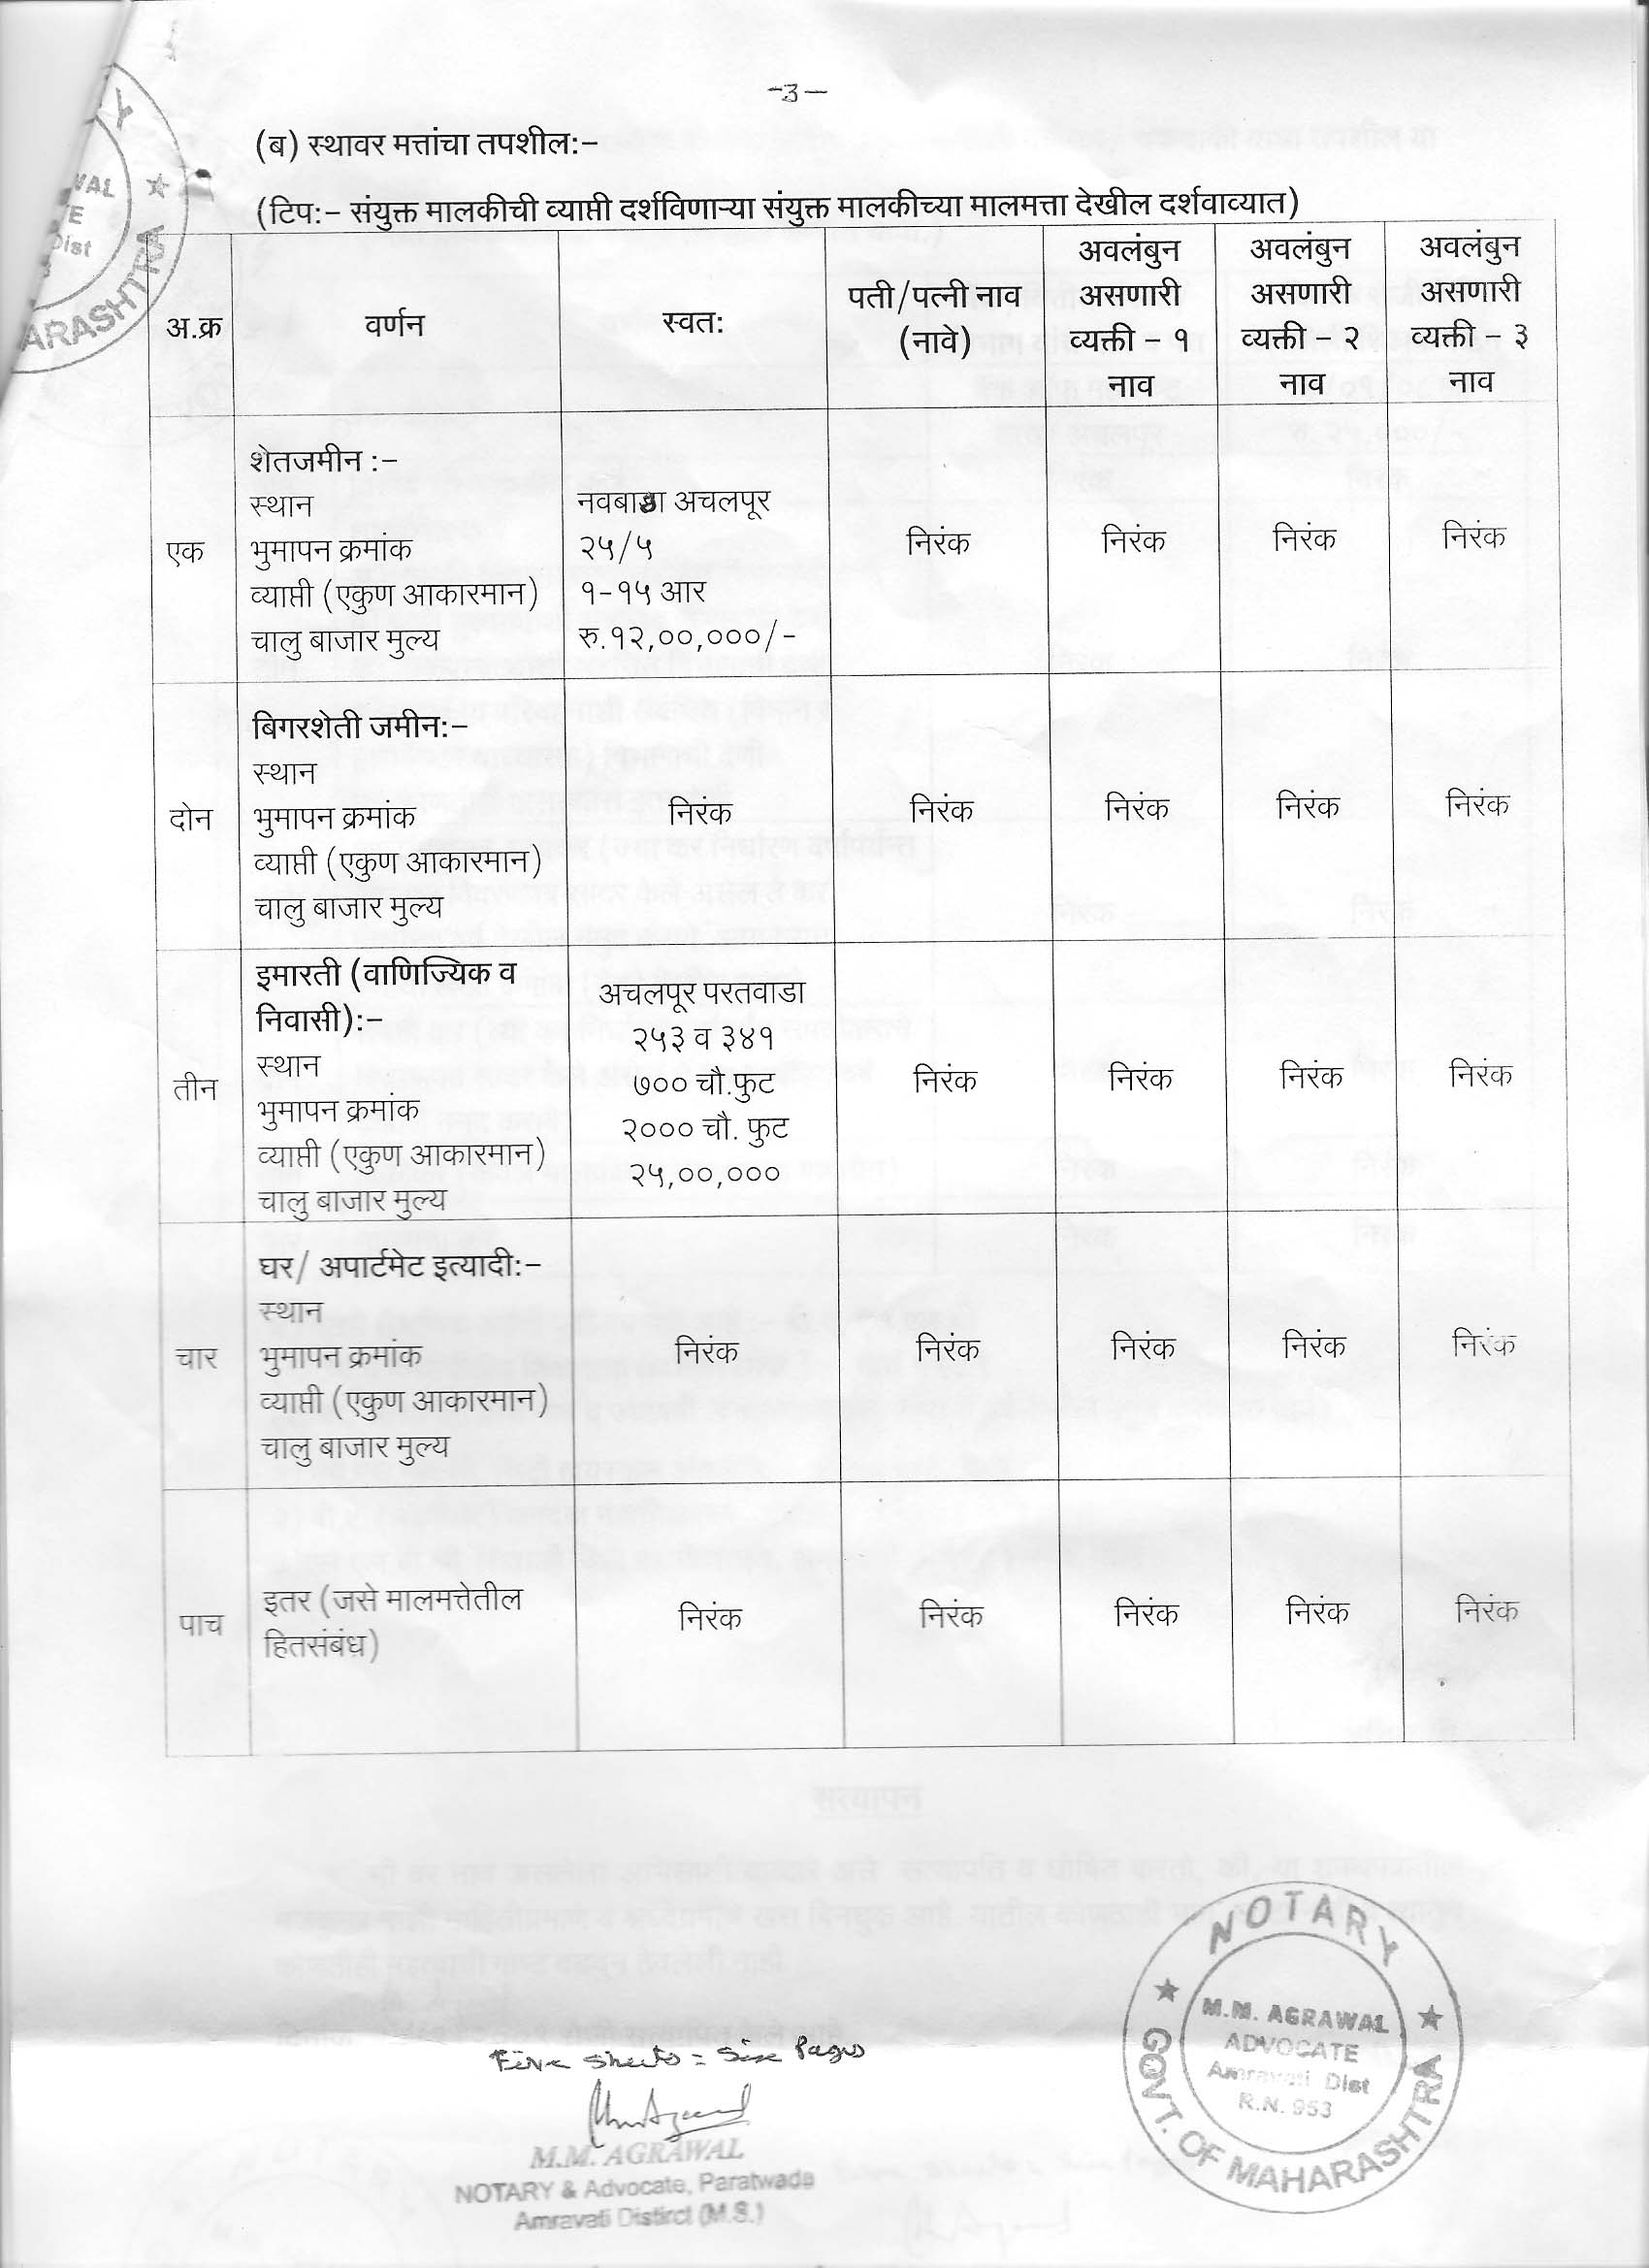 -3-
(ब) स्थावर मत्तांचा तपशील:-
(टिप:- संयुक्त मालकीची व्याप्ती दर्शविणाऱ्या संयुक्त मालकीच्या मालमत्ता देखील दर्शवाव्यात)
अ.क्र वर्णन स्वत: पती/पत्नी नाव (नावे) अवलंबुन असणारी व्यक्ती - १ नाव अवलंबुन असणारी व्यक्ती - २ नाव अवलंबुन असणारी व्यक्ती - ३ नाव
एक
शेतजमीन :-
स्थान नवबाडा अचलपूर
भुमापन क्रमांक २५/५ निरंक निरंक निरंक निरंक
व्याप्ती (एकुण आकारमान) १-१५ आर
चालु बाजार मुल्य रु.१२,००,०००/-
दोन
बिगरशेती जमीन:-
स्थान
भुमापन क्रमांक निरंक निरंक निरंक निरंक निरंक
व्याप्ती (एकुण आकारमान)
चालु बाजार मुल्य
तीन
इमारती (वाणिज्यिक व
निवासी):- अचलपूर परतवाडा
स्थान २५३ व ३४१
भुमापन क्रमांक ७०० चौ.फुट निरंक निरंक निरंक निरंक
व्याप्ती (एकुण आकारमान) २००० चौ. फुट
चालु बाजार मुल्य २५,००,०००
चार
घर/ अपार्टमेट इत्यादी:-
स्थान
भुमापन क्रमांक निरंक निरंक निरंक निरंक निरंक
व्याप्ती (एकुण आकारमान)
चालु बाजार मुल्य
पाच
इतर (जसे मालमत्तेतील
हितसंबंध) निरंक निरंक निरंक निरंक निरंक
सत्यापन
Five sheets = Six Pages
M.M. AGRAWAL
NOTARY & Advocate, Paratwada
Amravati Distirct (M.S.)
NOTARY
M.M. AGRAWAL
ADVOCATE
Amravati Dist
R.N. 953
GOVT. OF MAHARASHTRA